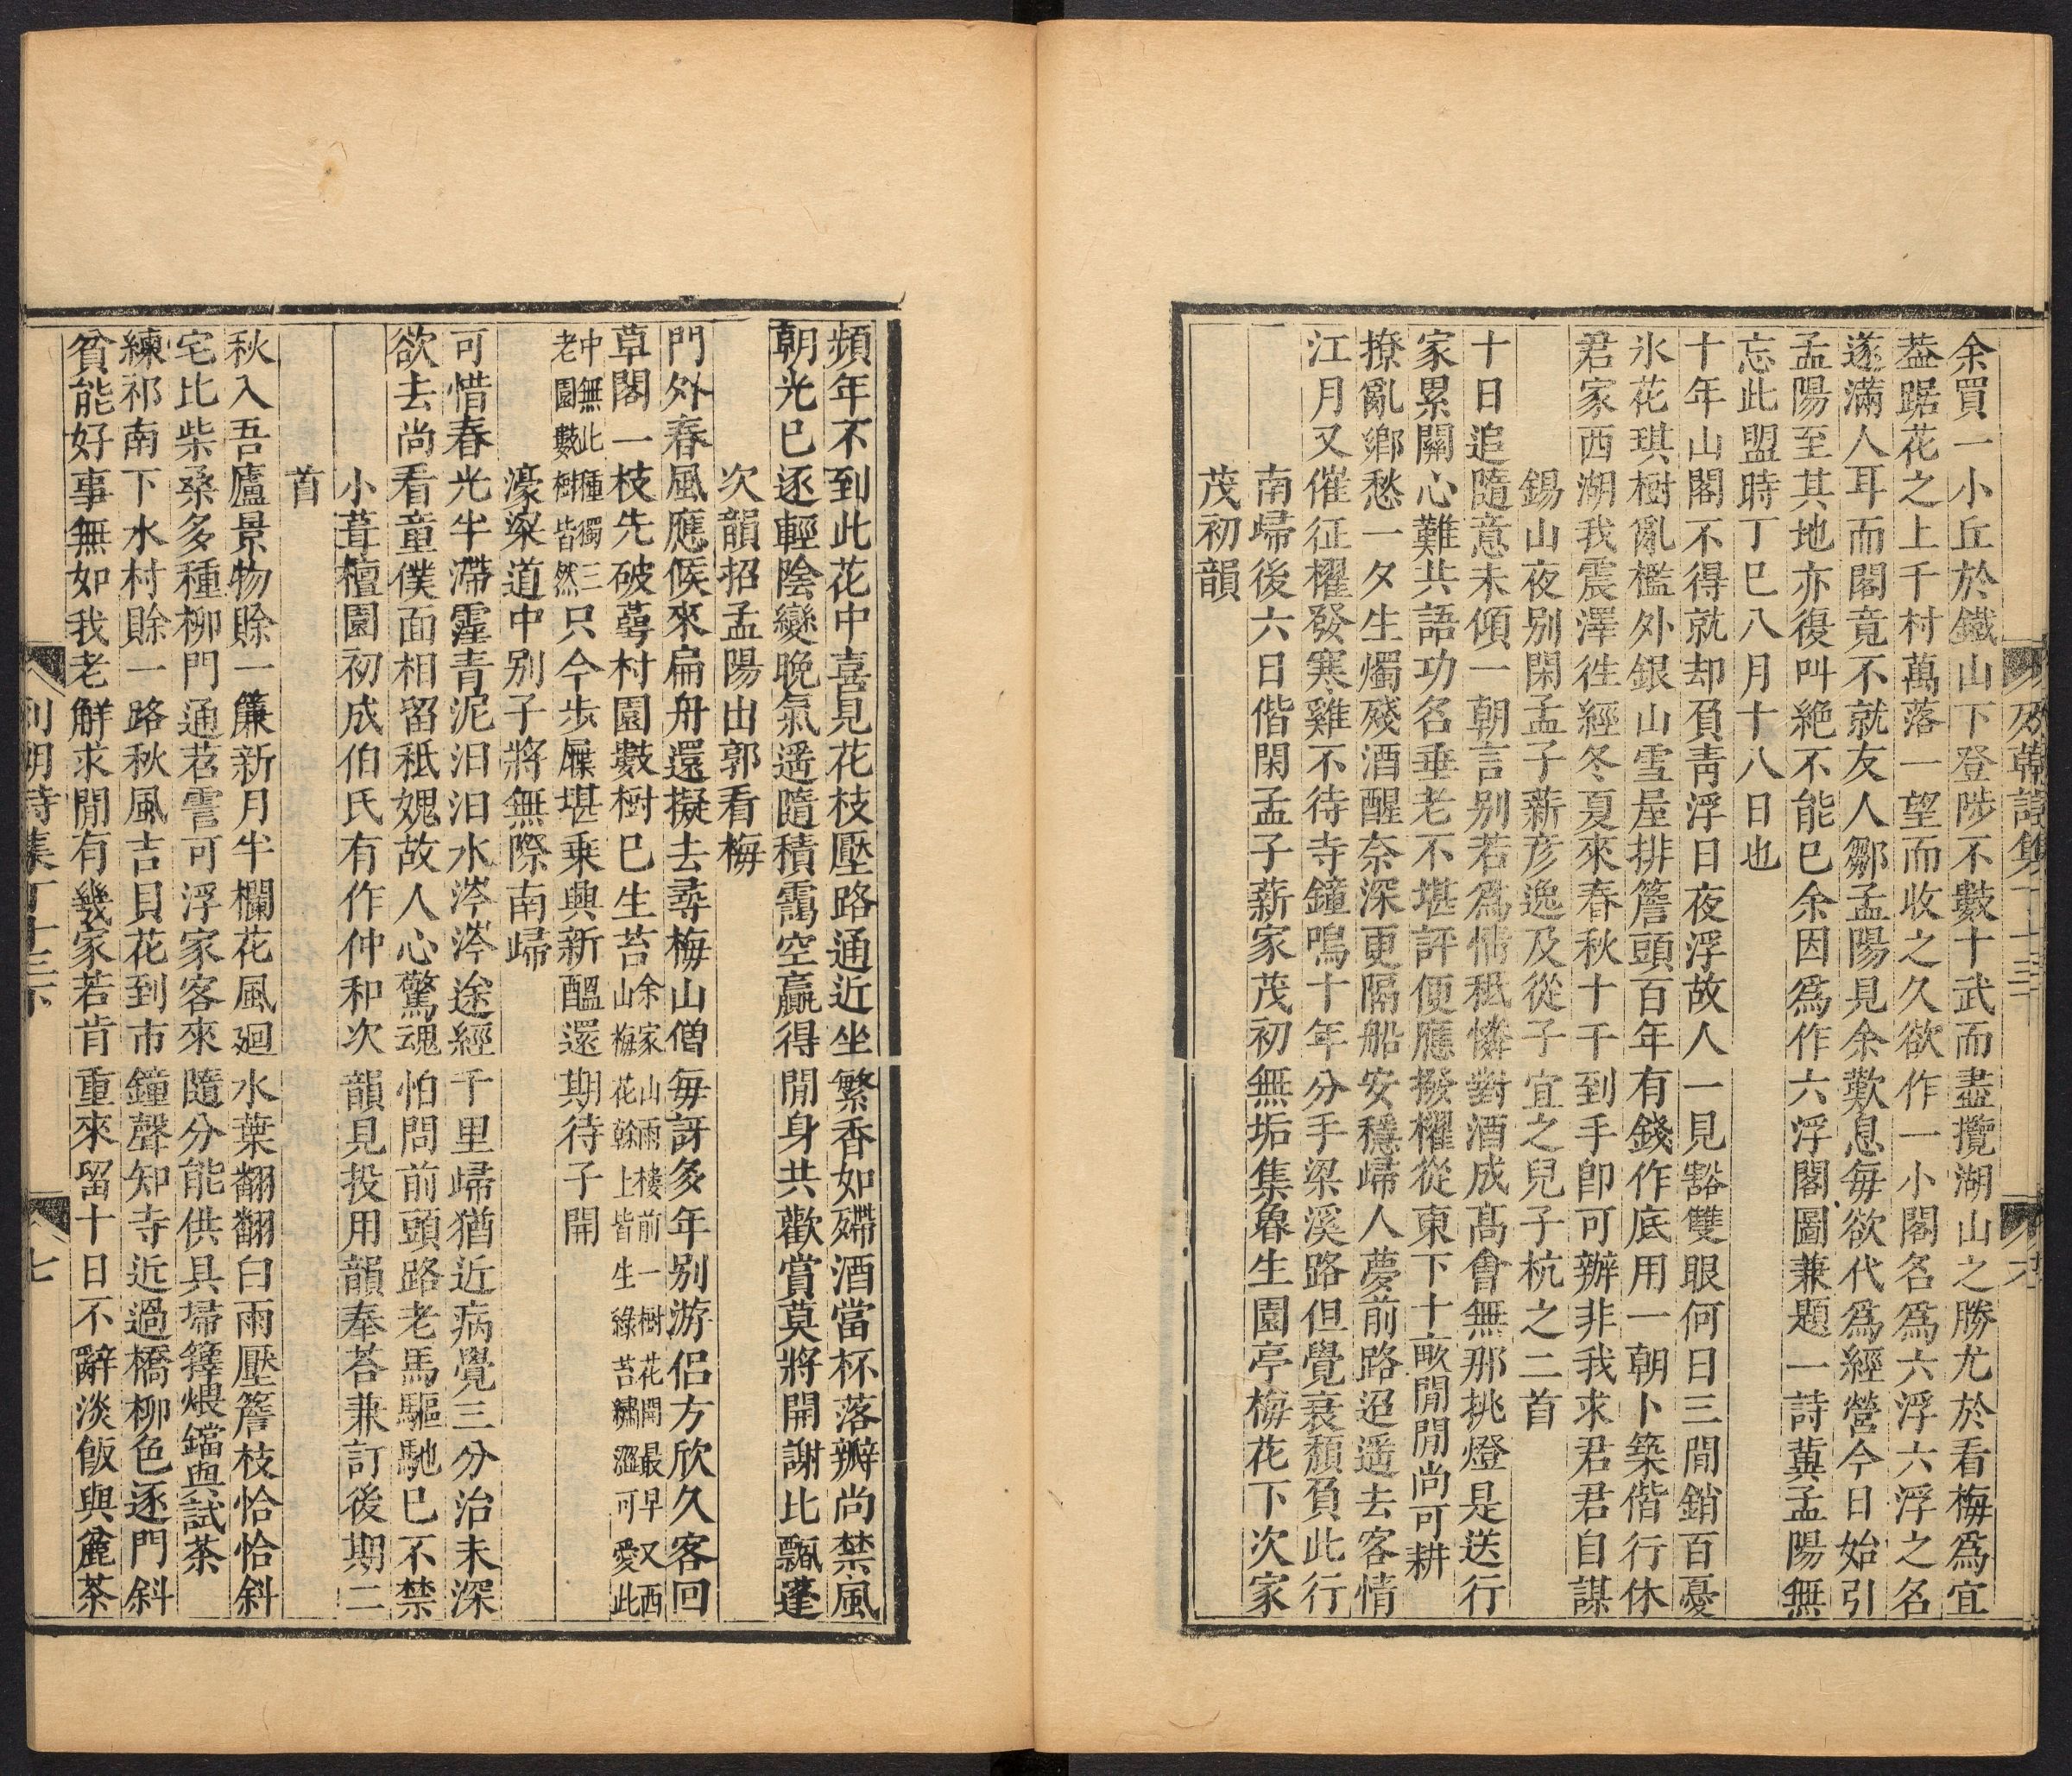 余買一小丘於鐵山下登陟不數十武而盡攬湖山之勝尤於看梅爲宜
葢踞花之上千村萬落一望而收之久欲作一小閣名爲六浮六浮之名
遂滿人耳而閣竟不就友人鄒孟陽見余歎息每欲代爲經營今日始引
孟陽至其地亦復叫絶不能已余因爲作六浮閣圖兼題一詩冀孟陽無
忘此盟時丁巳八月十八日也
十年山閣不得就却負靑浮日夜浮故人一見豁雙眼何日三間銷百憂
氷花琪樹亂檻外銀山雪屋排簷頭百年有錢作底用一朝卜築偕行休
君家西湖我震澤徃經冬夏來春秋十千到手卽可辦非我求君君自謀
錫山夜别閑孟子薪彦逸及從子宜之兒子杭之二首
十日追隨意未傾一朝言别若爲情秪憐對酒成髙會無那挑燈是送行
家累關心難共語功名垂老不堪評便應撥櫂從東下十畝閒閒尚可耕
撩亂鄕愁一夕生燭殘酒醒奈深更隔船安穩歸人夢前路迢遥去客情
江月又催征櫂發寒雞不待寺鐘鳴十年分手梁溪路但覺衰頹負此行
南歸後六日偕閑孟子薪家茂初無垢集魯生園亭梅花下次家
茂初韻
頻年不到此花中喜見花枝壓路通近坐繁香如殢酒當杯落瓣尚禁風
朝光巳逐輕陰變晩氣遥隨積靄空贏得閒身共歡賞莫將開謝比飄蓬
次韻招孟陽出郭看梅
門外春風應候來扁舟還擬去尋梅山僧每訝多年别游侣方欣久客回
草閣一枝先破蕚村園數樹巳生苔余家山雨樓前一樹花開最早又西山梅花幹上皆生綠苔繡澀可愛此
中無此種獨三老園數樹皆然只今歩屧堪乗興新醞還期待子開
濠梁道中别子將無際南歸
可惜春光半滯霪青泥汩汩水涔涔途經千里歸猶近病覺三分治未深
欲去尚看童僕面相留秪媿故人心驚魂怕問前頭路老馬驅馳巳不禁
小葺檀園初成伯氏有作仲和次韻見投用韻奉荅兼訂後期二
首
秋入吾廬景物賒一簾新月半欄花風廻水葉翻翻白雨壓簷枝恰恰斜
宅比柴桑多種柳門通苕霅可浮家客來隨分能供具埽籜煨鐺與試茶
練祁南下水村賒一路秋風吉貝花到市鐘聲知寺近過橋柳色逐門斜
貧能好事無如我老觧求閒有幾家若肯重來留十日不辭淡飯與麄茶
列朝詩集丁十三下 七